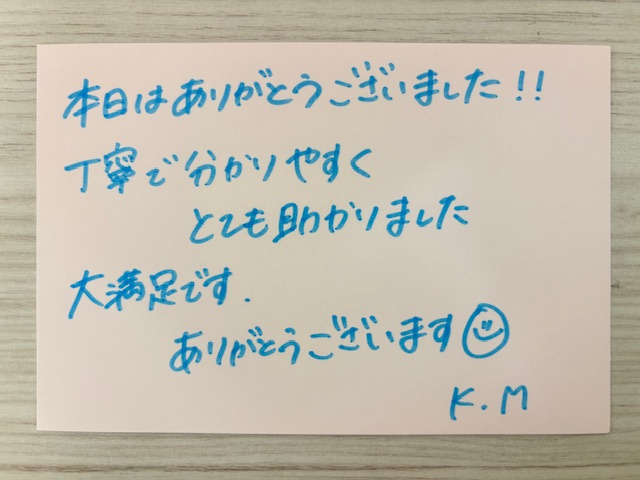 本日はありがとうございました!!
丁寧で分かりやすく
とても助かりました
大満足です.
ありがとうございます☺
K.M